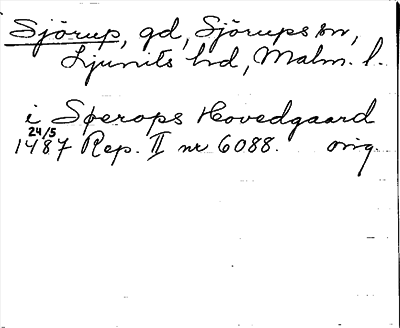 Sjörup, gd, Sjörups sn,
Ljunits hd, Malm. l.
i Sørops Hovedgaard
24/5
1487 Rep. II nr 6088. orig.